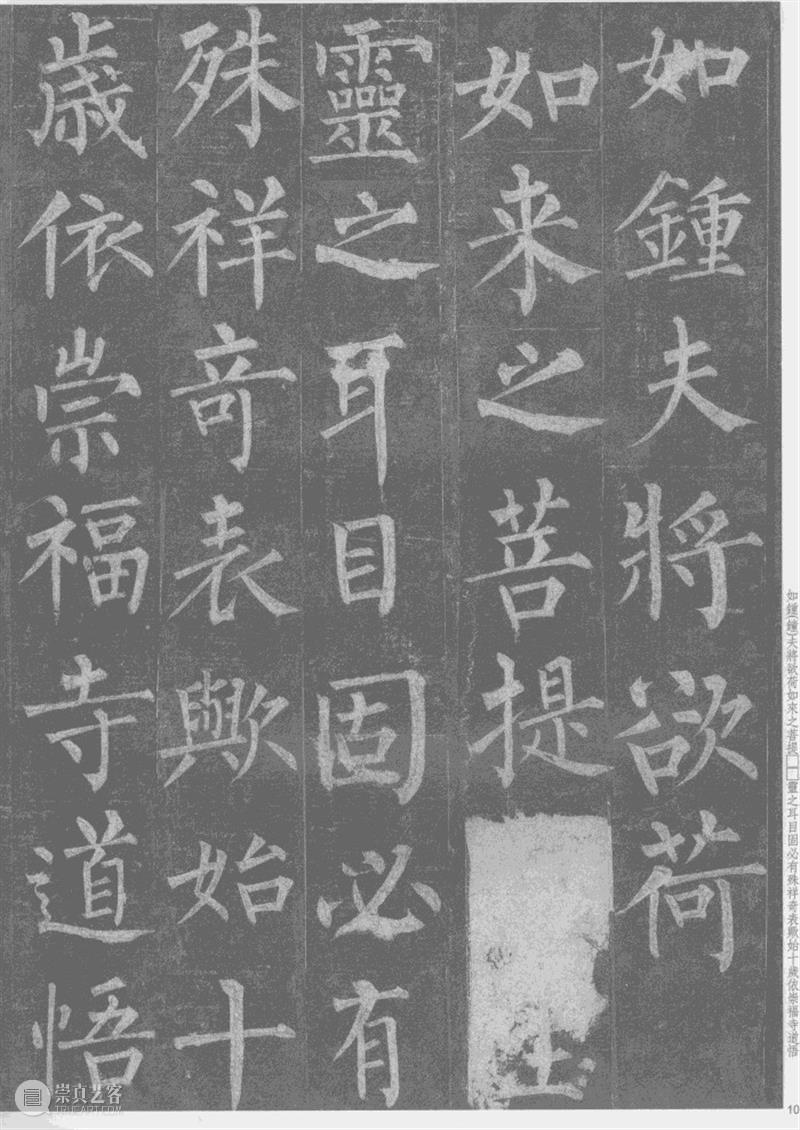 如鍾夫將欲荷
如来之菩提
靈之耳目固必有
殊祥竒表歟始十
歳依崇福寺道悟
如鍾(鐘)夫將欲荷如來之菩提□□靈之耳目固必有殊祥奇表歟始十歲依崇福寺道悟
10
崇真艺客
TRUEART.COM